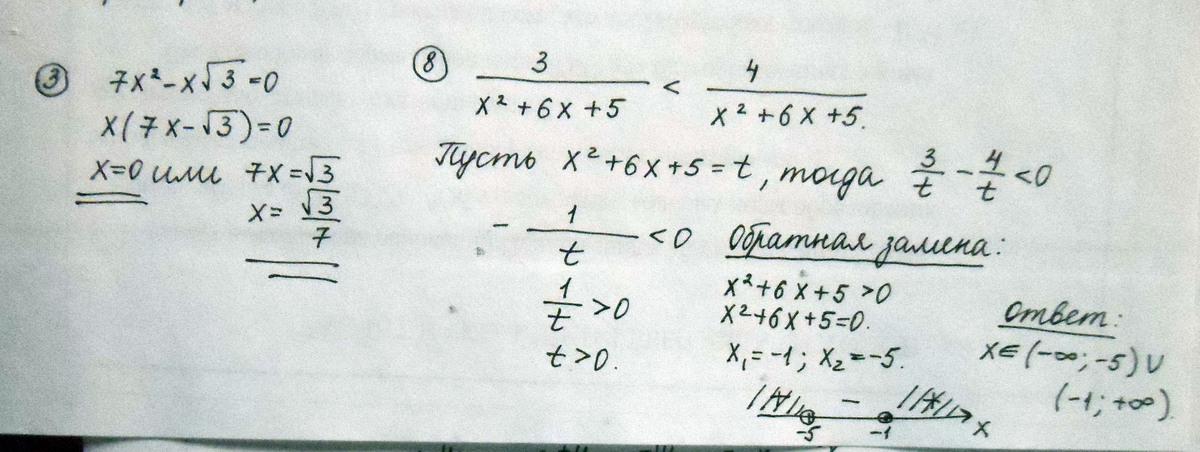 ③ 7x² - x√3 = 0
x(7x - √3) = 0
x=0 или 7x = √3
x = √3/7
⑧ 3/(x² + 6x + 5) < 4/(x² + 6x + 5).
Пусть x² + 6x + 5 = t, тогда 3/t - 4/t < 0
- 1/t < 0
1/t > 0
t > 0.
Обратная замена:
x² + 6x + 5 > 0
x² + 6x + 5 = 0.
x₁ = -1; x₂ = -5.
+ - +
-5 -1 x
Ответ:
x ∈ (-∞; -5) ∪
(-1; +∞)